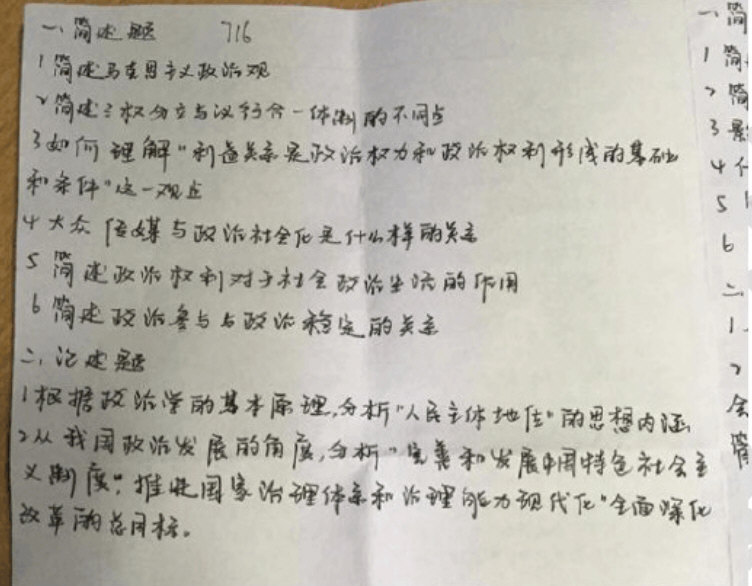 一、简述题 716
1 简述马克思主义政治观
2 简述三权分立与议行合一体制的不同点
3 如何理解"利益关系是政治权力和政治权利形成的基础
和条件"这一观点
4 大众传媒与政治社会化是什么样的关系
5 简述政治权利对于社会政治生活的作用
6 简述政治参与与政治稳定的关系
二、论述题
1 根据政治学的基本原理,分析"人民主体地位"的思想内涵
2 从我国政治发展的角度,分析"完善和发展中国特色社会主
义制度",推进国家治理体系和治理能力现代化"全面深化
改革的总目标。
一、简
1 简
2 简
3
4
5
6
二、
1.
2
会